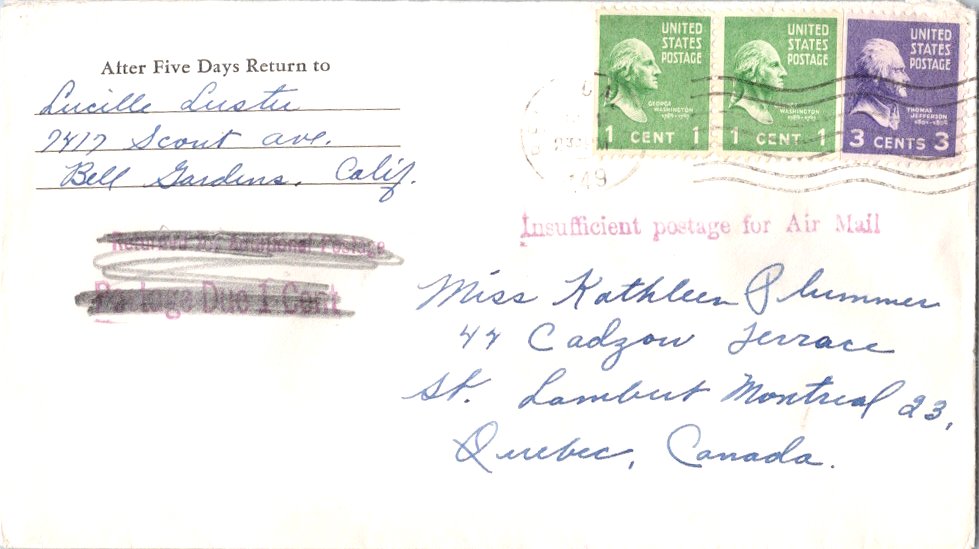 After Five Days Return to
Lucille Luster
7417 Scout ave.
Bell Gardens, Calif.
UNITED STATES POSTAGE
GEORGE WASHINGTON 1789-1797
1 CENT 1
UNITED STATES POSTAGE
GEORGE WASHINGTON 1789-1797
1 CENT 1
UNITED STATES POSTAGE
THOMAS JEFFERSON 1801-1809
3 CENTS 3
Insufficient postage for Air Mail
Returned for Additional Postage
Postage Due 1 Cent
Miss Kathleen Plummer
44 Cadzow Terrace
St. Lambert Montreal 23,
Quebec, Canada.